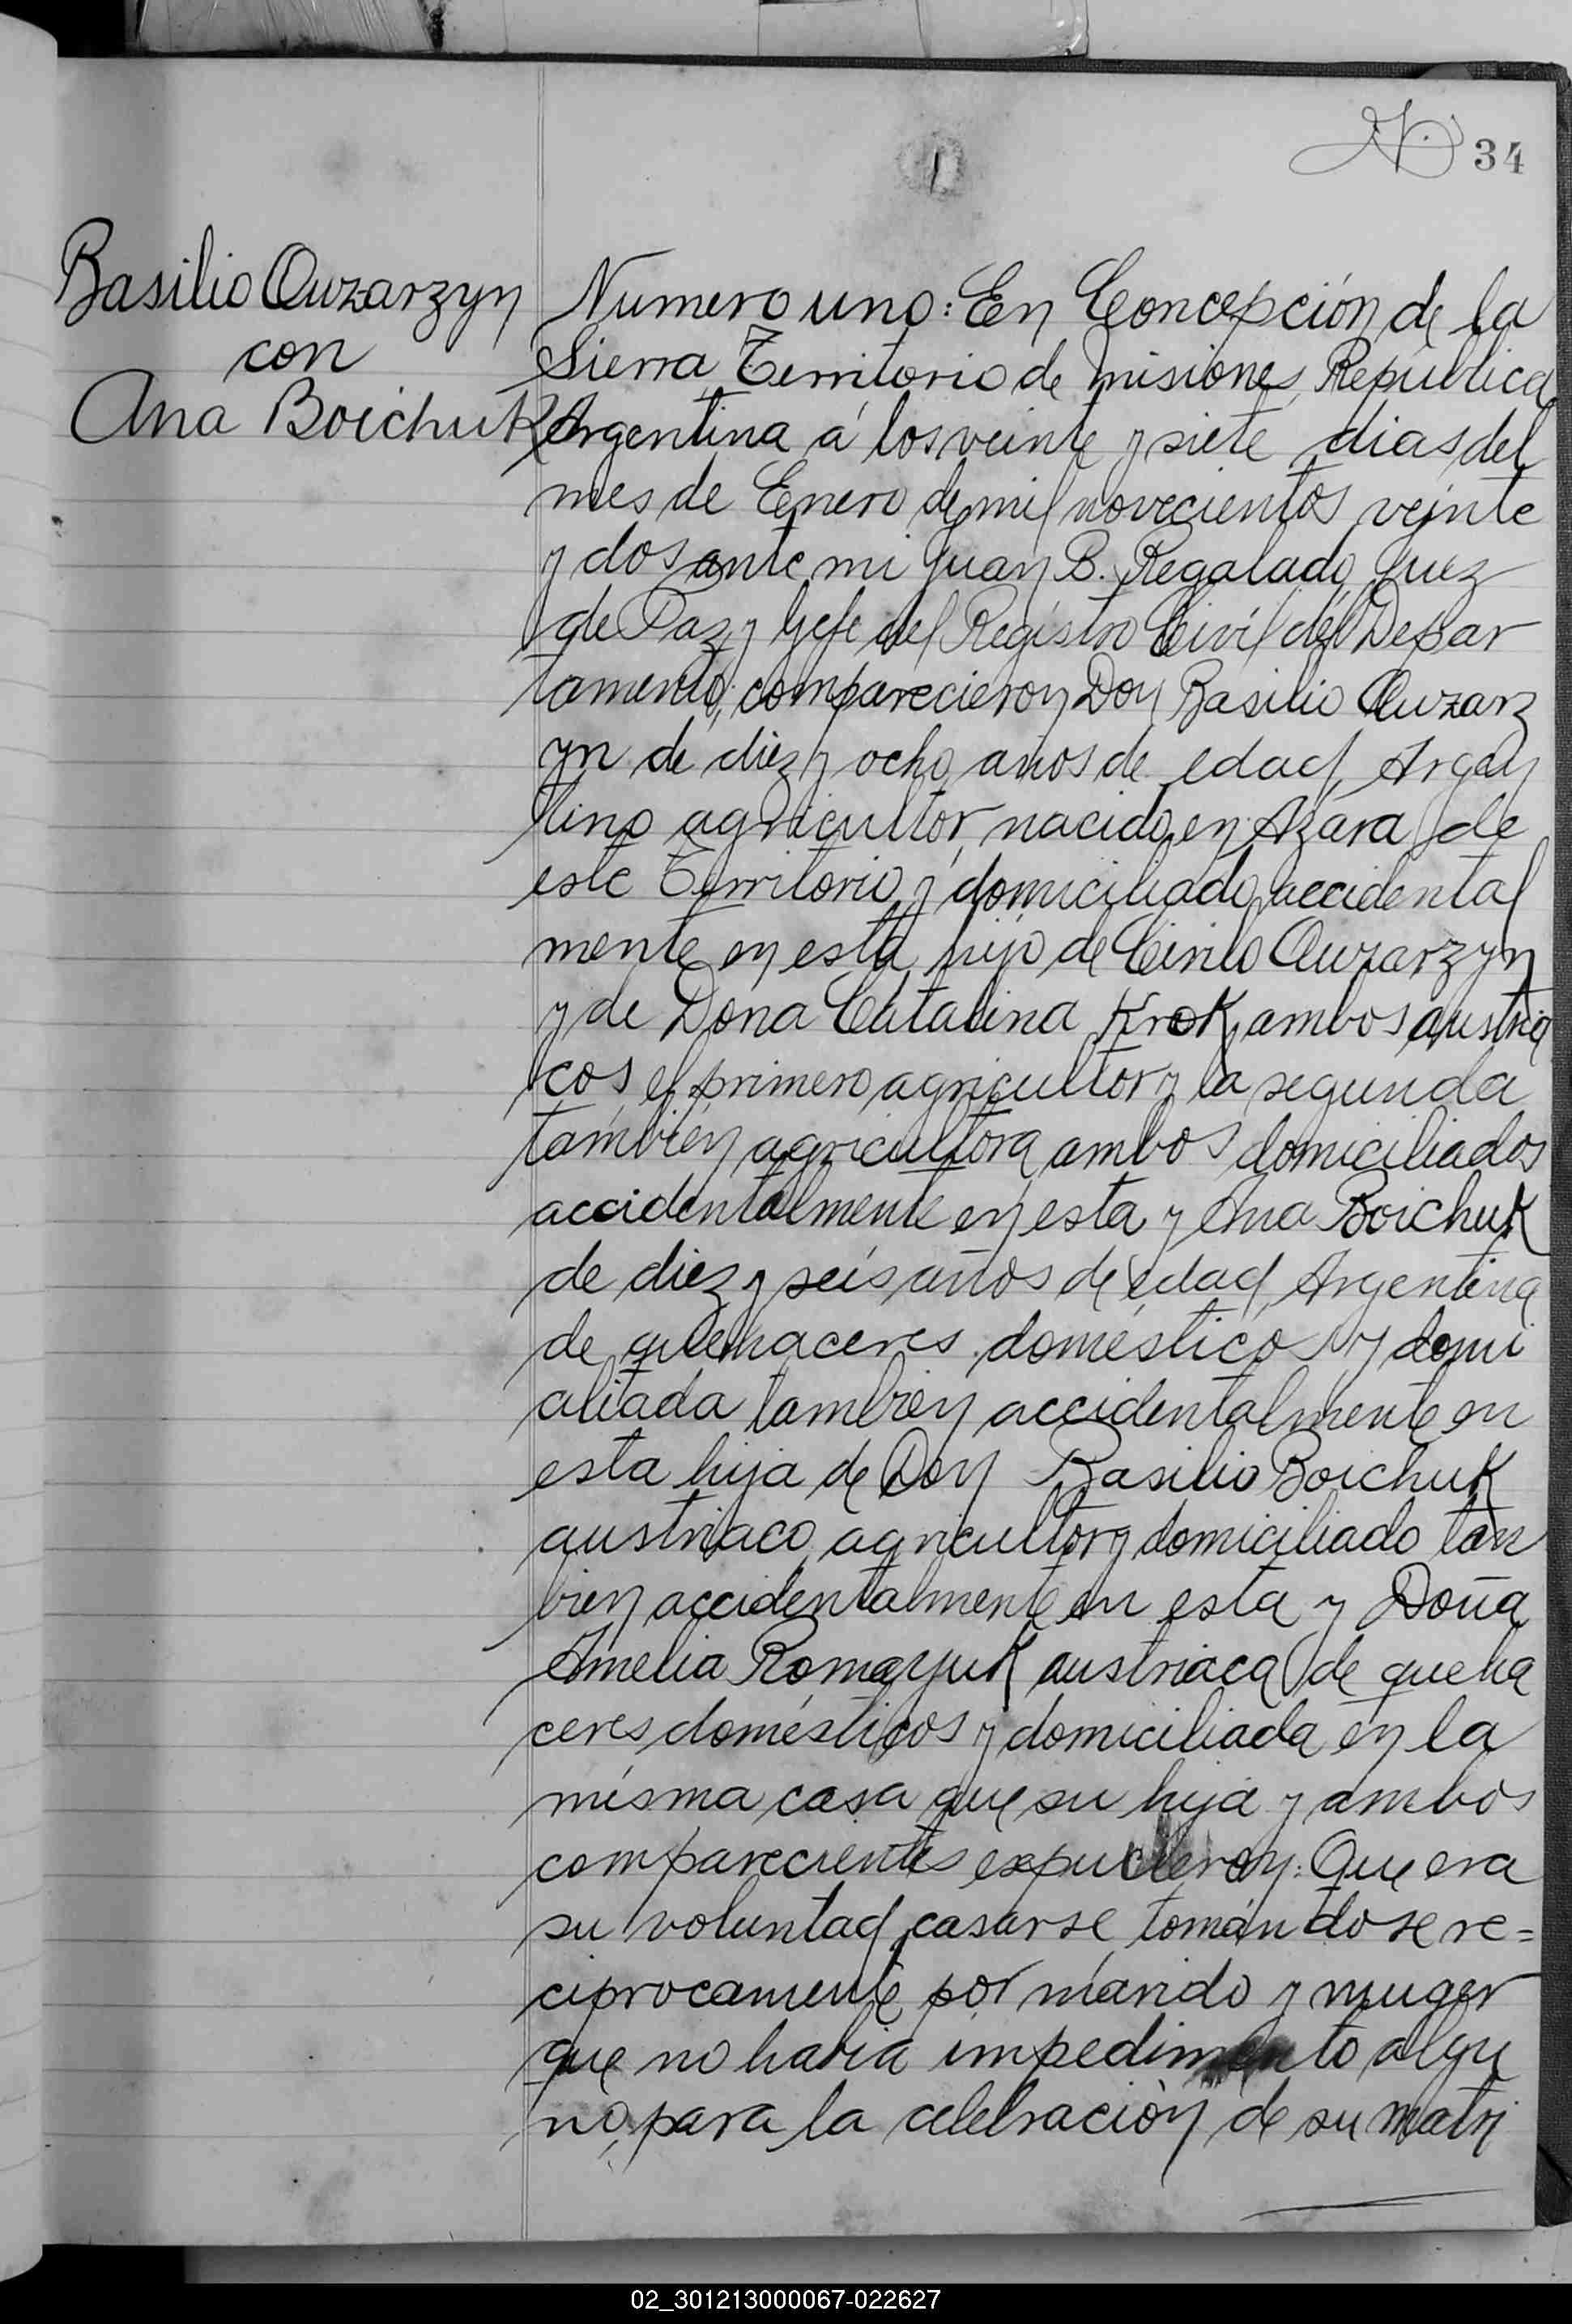 34
1
Basilio Owzarzyn
con
Ana Boichuk
Numero uno: En Concepción de la
Sierra Territorio de Misiones, República
Argentina á los veinte y siete dias del
mes de Enero de mil novecientos veinte
y dos ante mi Juan B. Regalado, Juez
de Paz y Gefe del Registro Civil del Depar
tamento, comparecieron Don Basilio Owzarz
yn de diez y ocho años de edad, Argen
tino agricultor, nacido en Azara de
este Territorio y domiciliado accidental
mente en esta, hijo de Cirilo Owzarzyn
y de Dona Catalina Krok, ambos austria
cos, el primero agricultor y la segunda
también agricultora ambos domiciliados
accidentalmente en esta y Ana Boichuk
de diez y seis años de edad, Argentina
de quehaceres domésticos y domi
ciliada tambien accidentalmente en
esta hija de Don Basilio Boichuk
austriaco, agricultor y domiciliado tan
bien accidentalmente en esta y Doña
Amelia Romanyuk austriaca de queha
ceres domésticos y domiciliada en la
misma casa que su hija y ambos
comparecientes expucieron: Que era
su voluntad casarse tomándose re=
ciprocamente por marido y muger
que no habia impedimento algu
no, para la celebración de su matri
02_301213000067-022627